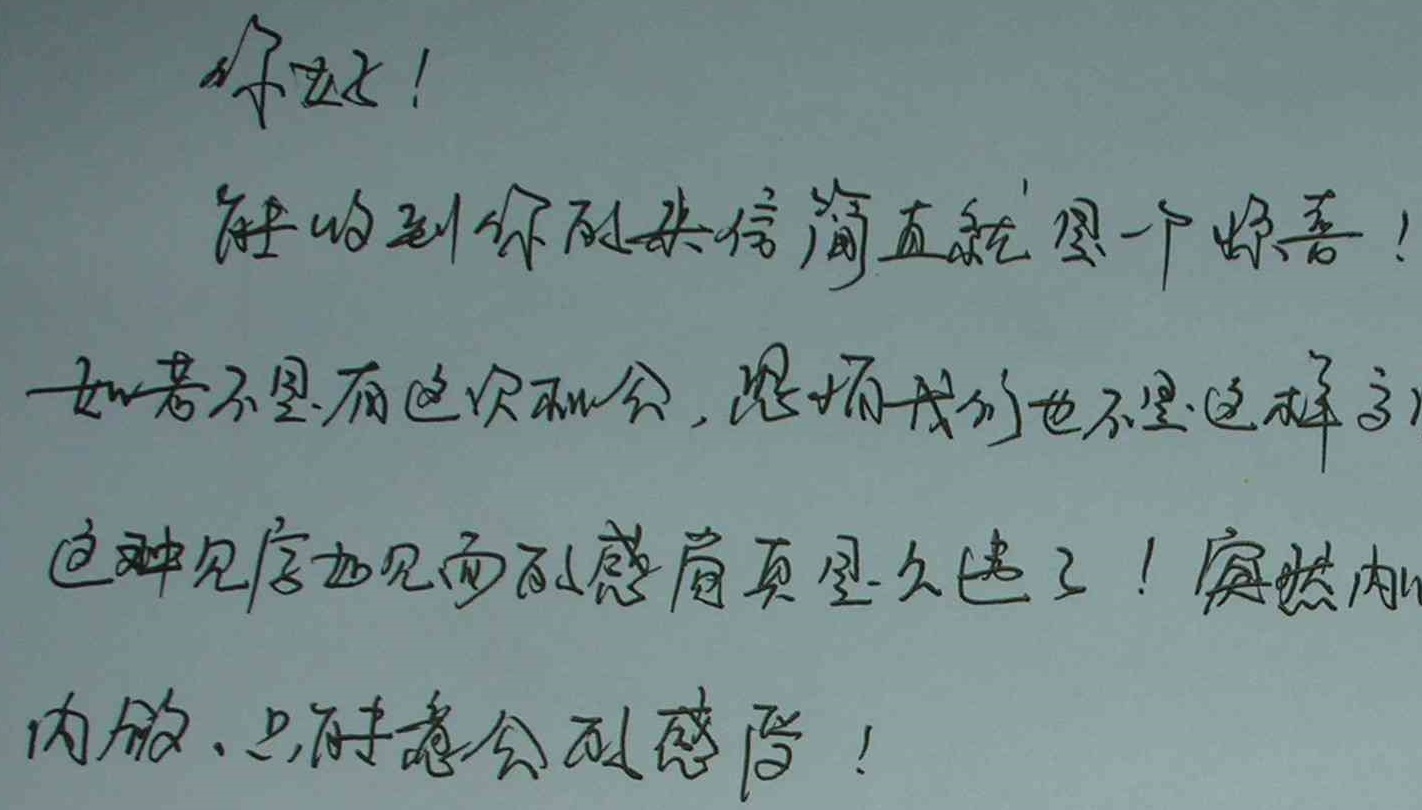 你好！
能收到你的来信简直就是一个惊喜！
如若不是有这次机会，恐怕我们也不是这样
这种见字如见面的感觉真是久违了！突然内
内敛、只能意会的感受！